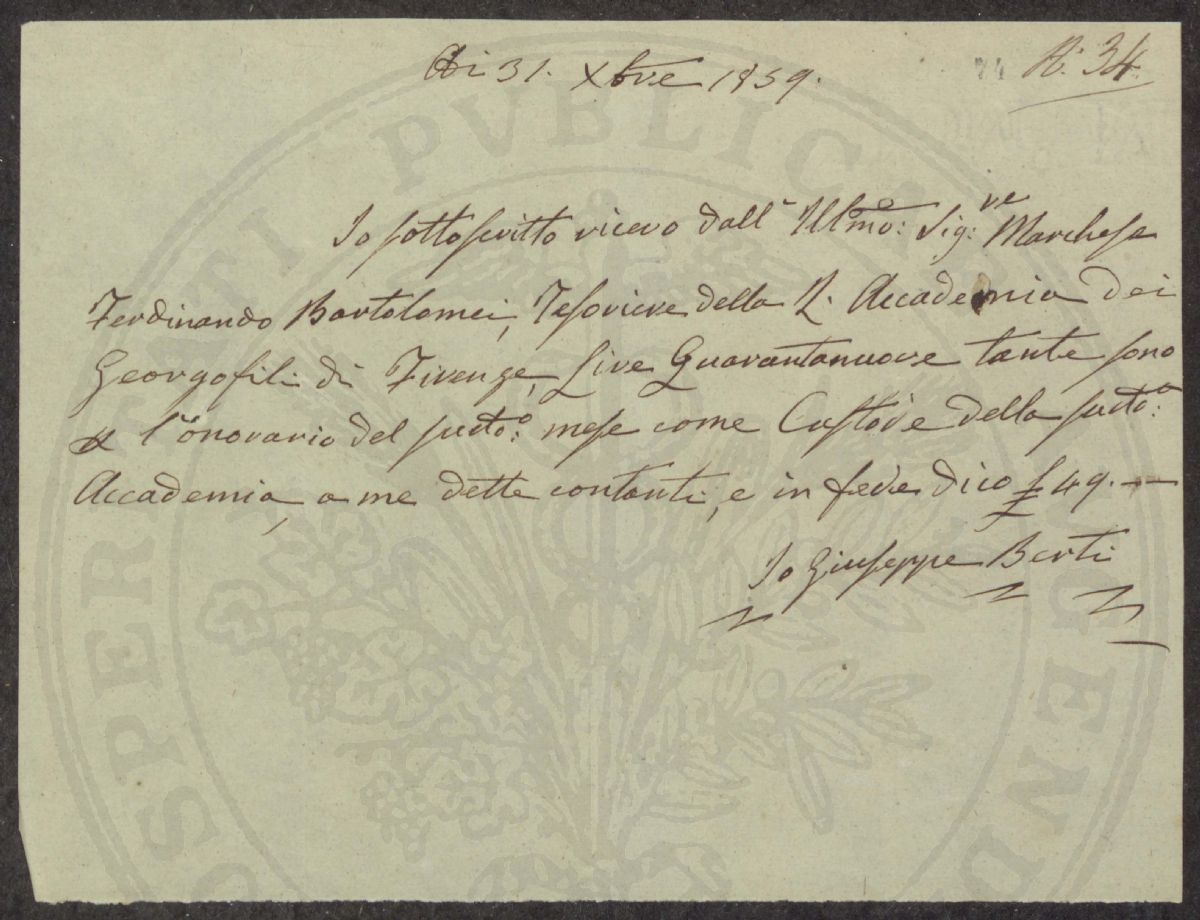 Adi 31. Xbre 1859.
74 N.° 34
Io sottoscritto ricevo dall' Illmo: Sig:re Marchese
Ferdinando Bartolomei, Tesoriere della R. Accademia dei
Georgofili di Firenze, Lire Quarantanuove tante sono
l'onorario del sudto: mese come Custode della sudta:
Accademia, a me dette contanti, e in fede dico £ 49. —
Io Giuseppe Berti
PROSPERITATI PVBLICAE AUGENDAE